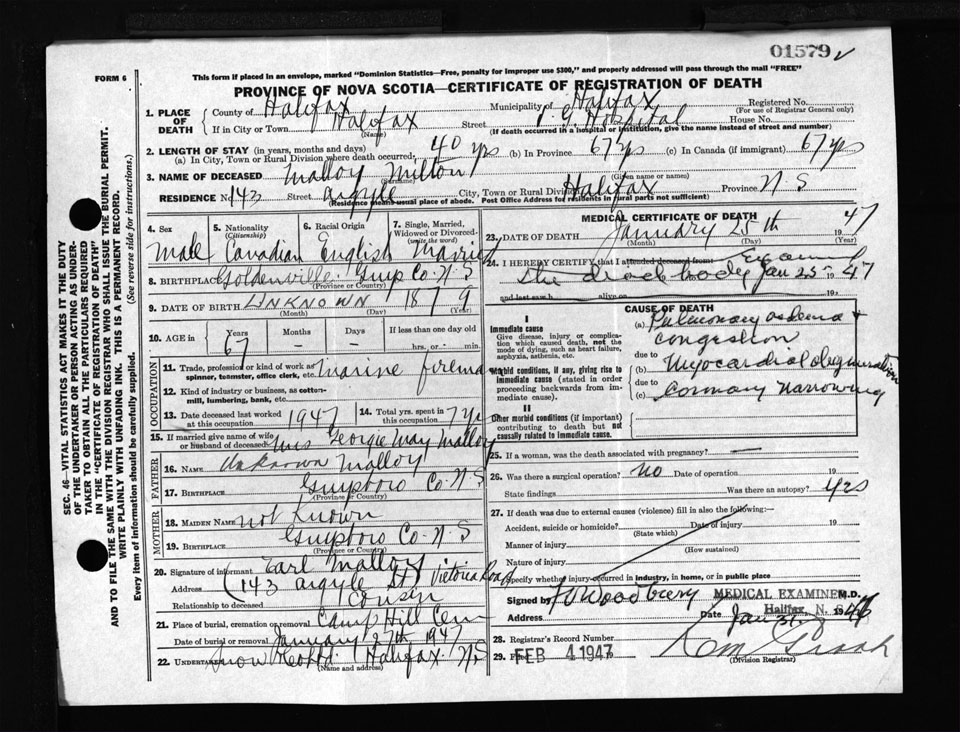 01579
FORM 6
This form if placed in an envelope, marked "Dominion Statistics—Free, penalty for improper use $300," and properly addressed will pass through the mail "FREE"
PROVINCE OF NOVA SCOTIA—CERTIFICATE OF REGISTRATION OF DEATH
SEC. 46—VITAL STATISTICS ACT MAKES IT THE DUTY
OF THE UNDERTAKER OR PERSON ACTING AS UNDERTAKER
TO OBTAIN ALL THE PARTICULARS REQUIRED
IN THE "CERTIFICATE OF REGISTRATION OF DEATH"
AND TO FILE THE SAME WITH THE DIVISION REGISTRAR WHO SHALL ISSUE THE BURIAL PERMIT.
WRITE PLAINLY WITH UNFADING INK. THIS IS A PERMANENT RECORD.
Every item of information should be carefully supplied. (See reverse side for instructions.)
1. PLACE OF DEATH County of Halifax Municipality of Halifax Registered No.
(For use of Registrar General only)
If in City or Town Halifax Street V. G. Hospital House No.
(Name) (If death occurred in a hospital or institution, give the name instead of street and number)
2. LENGTH OF STAY (in years, months and days)
(a) In City, Town or Rural Division where death occurred, 40 yrs (b) In Province 67 yrs (c) In Canada (if immigrant) 67 yrs
3. NAME OF DECEASED Malloy Milton
(Surname) (Given name or names)
RESIDENCE No. 143 Street Argyle City, Town or Rural Division Halifax Province N.S
(Residence means usual place of abode. Post Office Address for residents in rural parts not sufficient)
4. Sex Male
5. Nationality (Citizenship) Canadian
6. Racial Origin English
7. Single, Married, Widowed or Divorced (write the word) Married
8. BIRTHPLACE Goldenville Guys Co N.S
(Province or Country)
9. DATE OF BIRTH UNKNOWN 1879
(Month) (Day) (Year)
10. AGE in Years 67 Months — Days — If less than one day old
hrs. or min.
OCCUPATION
11. Trade, profession or kind of work as spinner, teamster, office clerk, etc. Marine fireman
12. Kind of industry or business, as cotton-mill, lumbering, bank, etc.
13. Date deceased last worked at this occupation 1947
14. Total yrs. spent in this occupation 7 yrs
15. If married give name of wife or husband of deceased Mrs Georgie May Malloy
FATHER
16. NAME Unknown Malloy
17. BIRTHPLACE Guysboro Co. N.S
(Province or Country)
MOTHER
18. MAIDEN NAME not known
19. BIRTHPLACE Guysboro Co. N.S
(Province or Country)
20. Signature of informant Earl Malloy
Address 143 Argyle St Victoria Road
Relationship to deceased Cousin
21. Place of burial, cremation or removal Camp Hill Cem
Date of burial or removal January 27th 1947
22. UNDERTAKER Snow Halifax N.S
(Name and address)
MEDICAL CERTIFICATE OF DEATH
23. DATE OF DEATH January 25th 1947
(Month) (Day) (Year)
24. I HEREBY CERTIFY that I attended deceased from Examined
the dead body Jan 25 1947
and last saw h alive on 19
CAUSE OF DEATH
I
Immediate cause
Give disease, injury or complication which caused death, not the mode of dying, such as heart failure, asphyxia, asthenia, etc.
(a) Pulmonary oedema +
congestion
due to
Morbid conditions, if any, giving rise to immediate cause (stated in order proceeding backwards from immediate cause).
(b) Myocardial degeneration
due to
(c) Coronary narrowing
II
Other morbid conditions (if important) contributing to death but not causally related to immediate cause.
25. If a woman, was the death associated with pregnancy? —
26. Was there a surgical operation? No Date of operation 19
State findings Was there an autopsy? yes
27. If death was due to external causes (violence) fill in also the following:—
Accident, suicide or homicide? Date of injury 19
(State which)
Manner of injury
(How sustained)
Nature of injury
Specify whether injury occurred in industry, in home, or in public place
Signed by Woodbury MEDICAL EXAMINER M.D.
Halifax, N. S.
Address Date Jan 31
28. Registrar's Record Number
29. FEB 4 1947
(Division Registrar)